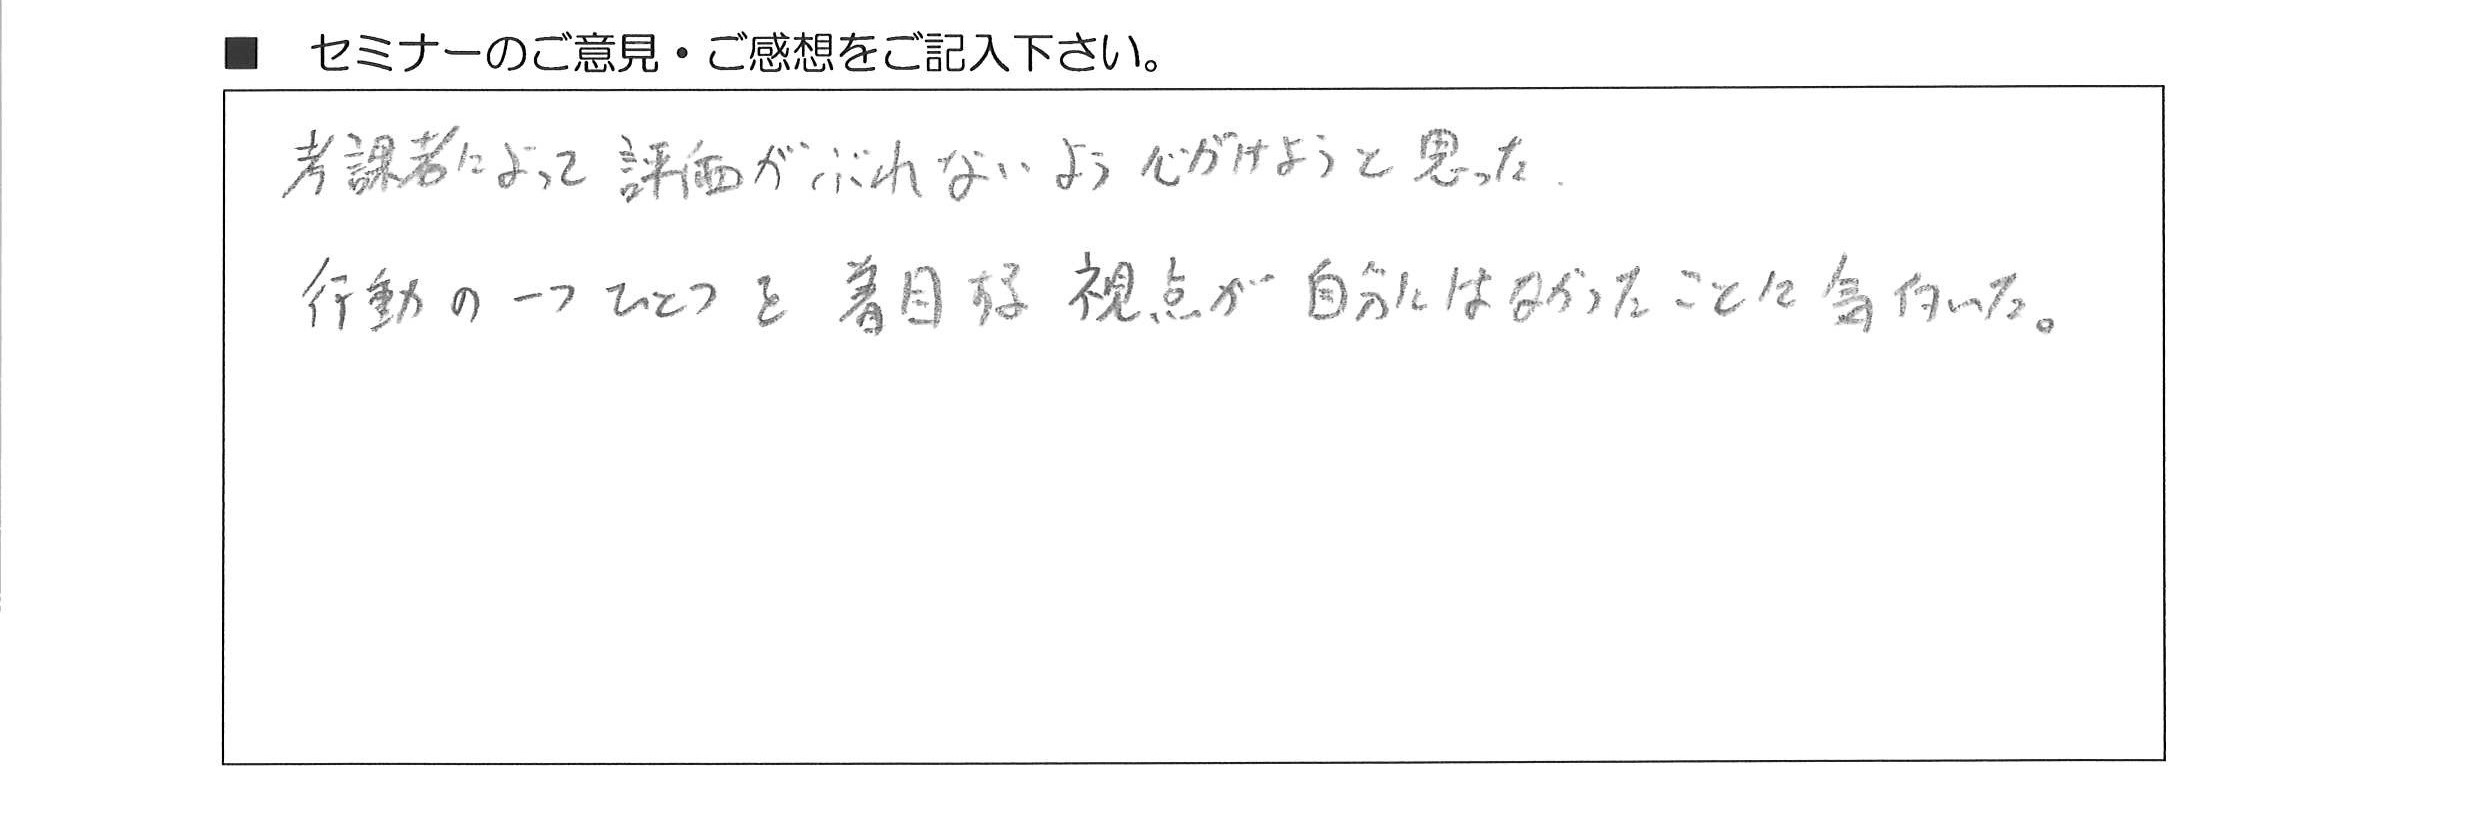 ■ セミナーのご意見・ご感想をご記入下さい。
考課者によって評価がぶれないよう心がけようと思った.
行動の一つひとつを着目する視点が自分にはなかったことに気付いた。